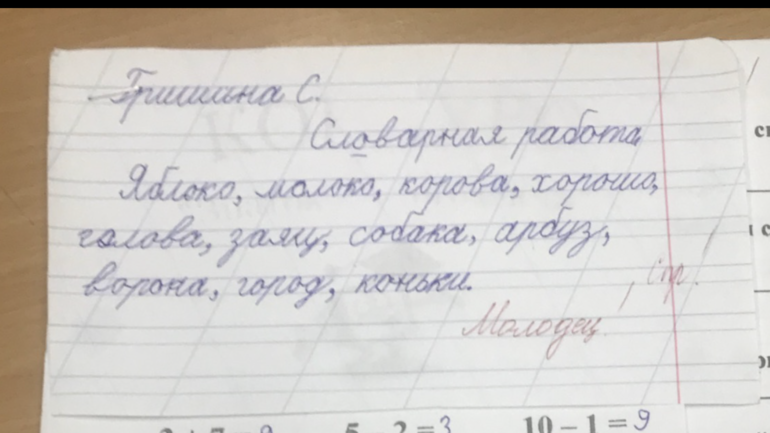 Гришина С.
Словарная работа.
Яблоко, молоко, корова, хорошо,
голова, заяц, собака, арбуз,
ворона, город, коньки.
Молодец!
5 - 2 = 3 10 - 1 = 9